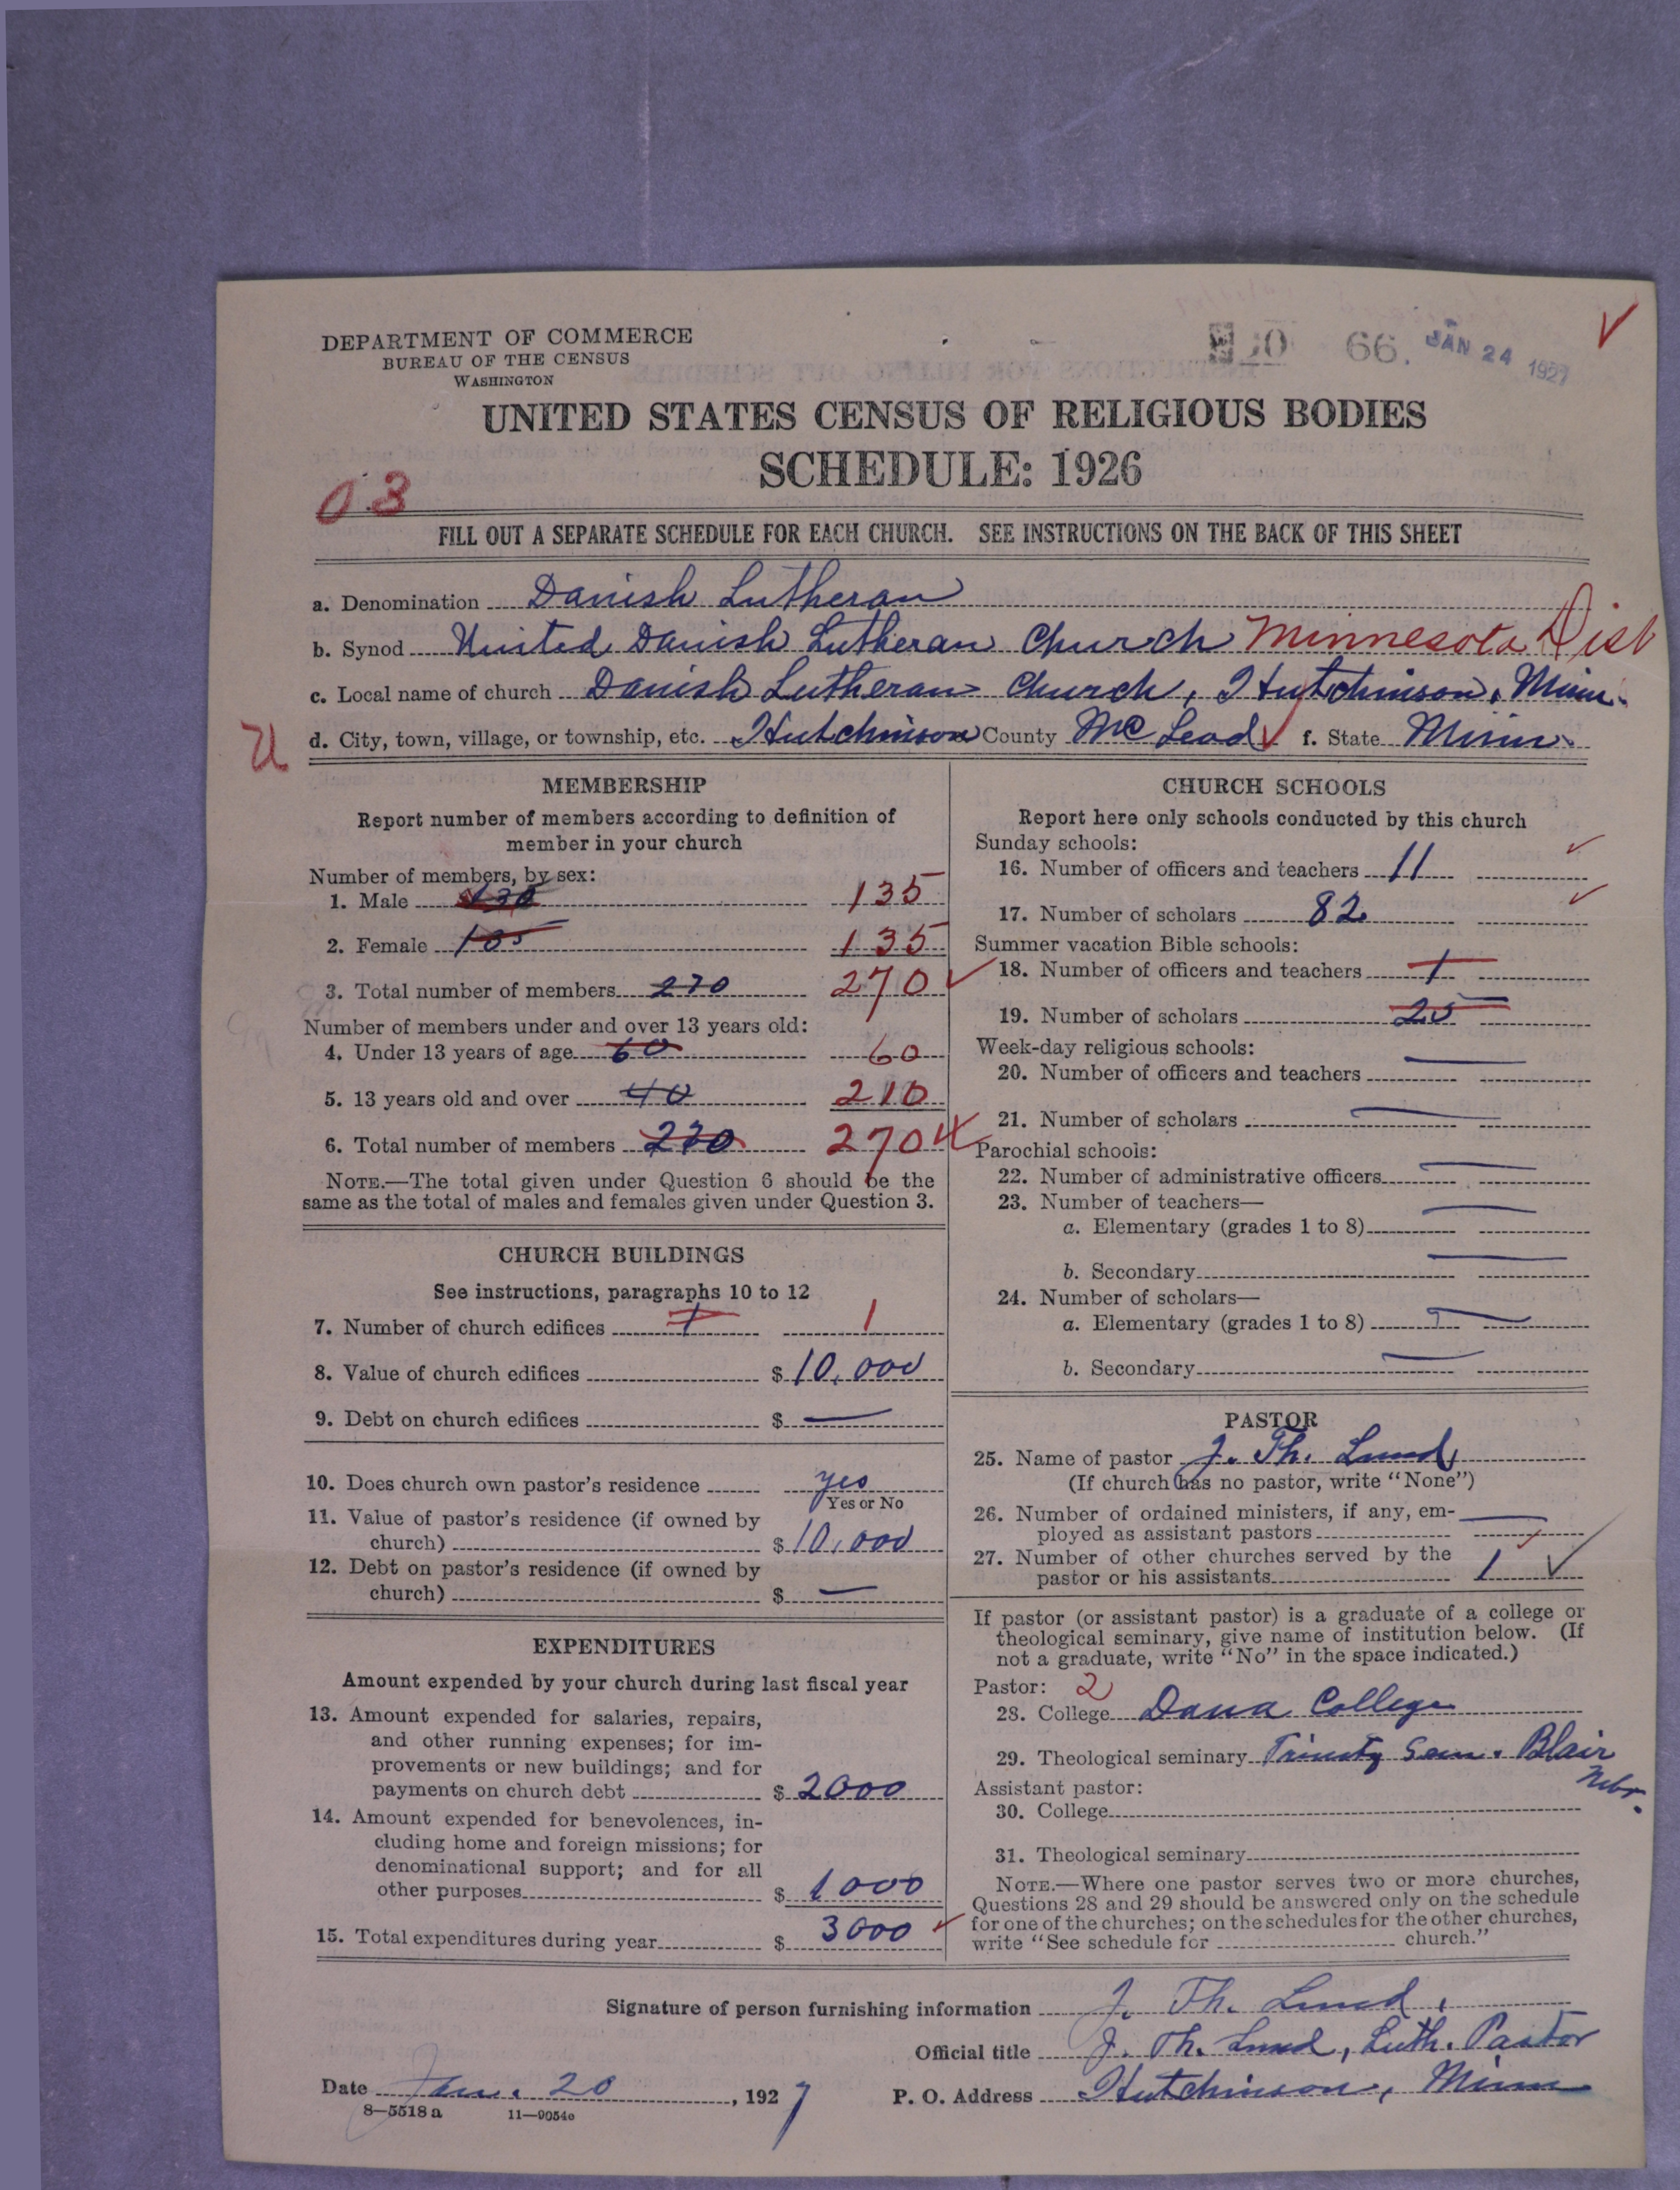 DEPARTMENT OF COMMERCE
BUREAU OF THE CENSUS
WASHINGTON
66. JAN 24 1927
UNITED STATES CENSUS OF RELIGIOUS BODIES
SCHEDULE: 1926
03
FILL OUT A SEPARATE SCHEDULE FOR EACH CHURCH. SEE INSTRUCTIONS ON THE BACK OF THIS SHEET
a. Denomination Danish Lutheran
b. Synod United Danish Lutheran Church Minnesota Dist
c. Local name of church Danish Lutheran Church, Hutchinson, Minn.
U
d. City, town, village, or township, etc. Hutchinson County Mc Leod f. State Minn.
MEMBERSHIP
Report number of members according to definition of
member in your church
Number of members, by sex:
1. Male 135
2. Female 135
3. Total number of members 270 270
Number of members under and over 13 years old:
4. Under 13 years of age 60 60
5. 13 years old and over 40 210
6. Total number of members 270 270
NOTE.—The total given under Question 6 should be the
same as the total of males and females given under Question 3.
CHURCH BUILDINGS
See instructions, paragraphs 10 to 12
7. Number of church edifices 1 1
8. Value of church edifices $ 10,000
9. Debt on church edifices $ —
10. Does church own pastor's residence yes
Yes or No
11. Value of pastor's residence (if owned by
church) $ 10,000
12. Debt on pastor's residence (if owned by
church) $ —
EXPENDITURES
Amount expended by your church during last fiscal year
13. Amount expended for salaries, repairs,
and other running expenses; for im-
provements or new buildings; and for
payments on church debt $ 2000
14. Amount expended for benevolences, in-
cluding home and foreign missions; for
denominational support; and for all
other purposes $ 1000
15. Total expenditures during year $ 3000
CHURCH SCHOOLS
Report here only schools conducted by this church
Sunday schools:
16. Number of officers and teachers 11
17. Number of scholars 82
Summer vacation Bible schools:
18. Number of officers and teachers 1
19. Number of scholars 25
Week-day religious schools:
20. Number of officers and teachers —
21. Number of scholars —
Parochial schools:
22. Number of administrative officers —
23. Number of teachers—
a. Elementary (grades 1 to 8) —
b. Secondary —
24. Number of scholars—
a. Elementary (grades 1 to 8) —
b. Secondary —
PASTOR
25. Name of pastor J. Th. Lund
(If church has no pastor, write "None")
26. Number of ordained ministers, if any, em-
ployed as assistant pastors —
27. Number of other churches served by the
pastor or his assistants 1
If pastor (or assistant pastor) is a graduate of a college or
theological seminary, give name of institution below. (If
not a graduate, write "No" in the space indicated.)
Pastor: 2
28. College Dana College
29. Theological seminary Trinity Sem. Blair
Nebr.
Assistant pastor:
30. College
31. Theological seminary
NOTE.—Where one pastor serves two or more churches,
Questions 28 and 29 should be answered only on the schedule
for one of the churches; on the schedules for the other churches,
write "See schedule for church."
Signature of person furnishing information J. Th. Lund.
Official title J. Th. Lund, Luth. Pastor
Date Jan. 20, 1927 P. O. Address Hutchinson, Minn
8—5518 a 11—9054c